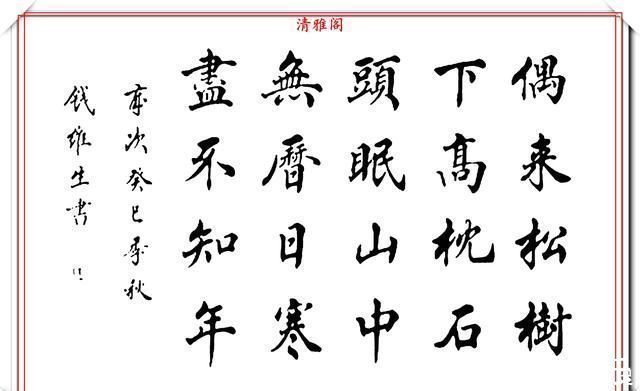 清雅阁
偶来松樹
下髙枕石
頭眠山中
無曆日寒
盡不知年
歲次癸巳秋
钱维生書